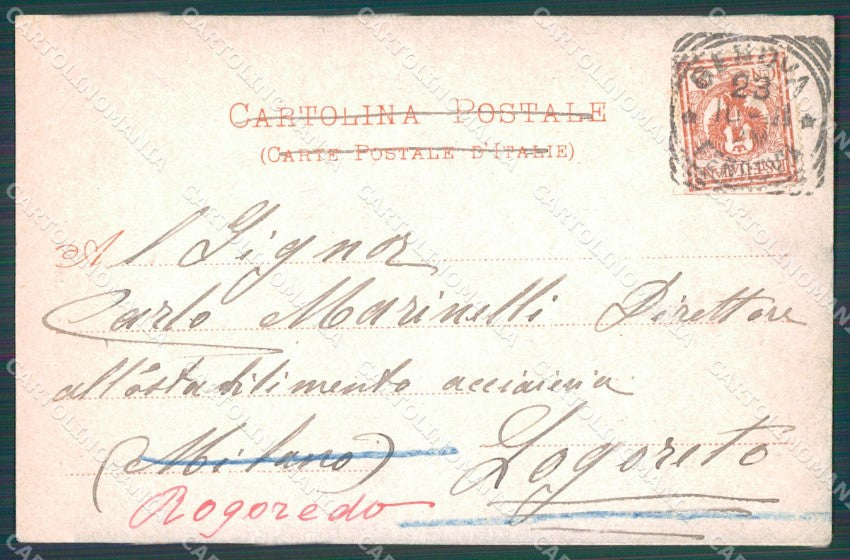 CARTOLINA POSTALE
(CARTE POSTALE D'ITALIE)
GENOVA
23
Al Signor
Carlo Marinelli Direttore
all'ostabilimento acciaieria
(Milano) Logoreto
Rogoredo
CARTOLINOMANIA